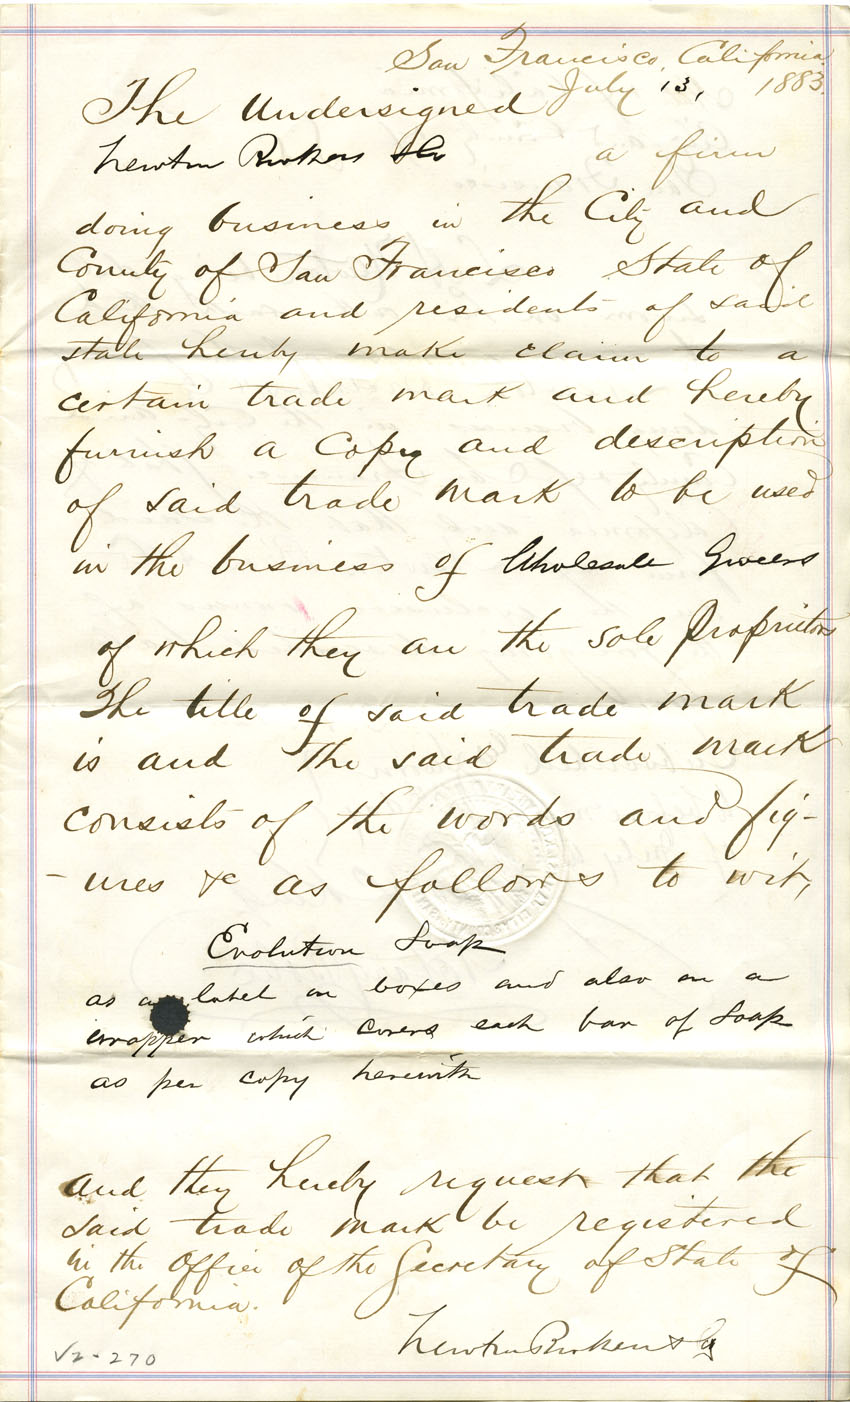 San Francisco, California.
July 13, 1883.
The Undersigned
Newton & Co a firm
doing business in the City and
County of San Francisco State of
California and residents of said
state hereby make claim to a
certain trade mark and hereby
furnish a Copy and description
of said trade mark to be used
in the business of Wholesale Grocers
of which they are the sole Proprietors
The title of said trade mark
is and the said trade mark
consists of the words and fig-
-ures &c as follows to wit,
Evolution Soap
as a label on boxes and also on a
wrapper which covers each bar of Soap
as per copy herewith
and they hereby request that the
said trade mark be registered
in the Office of the Secretary of State of
California.
Newton & Co
V2-270